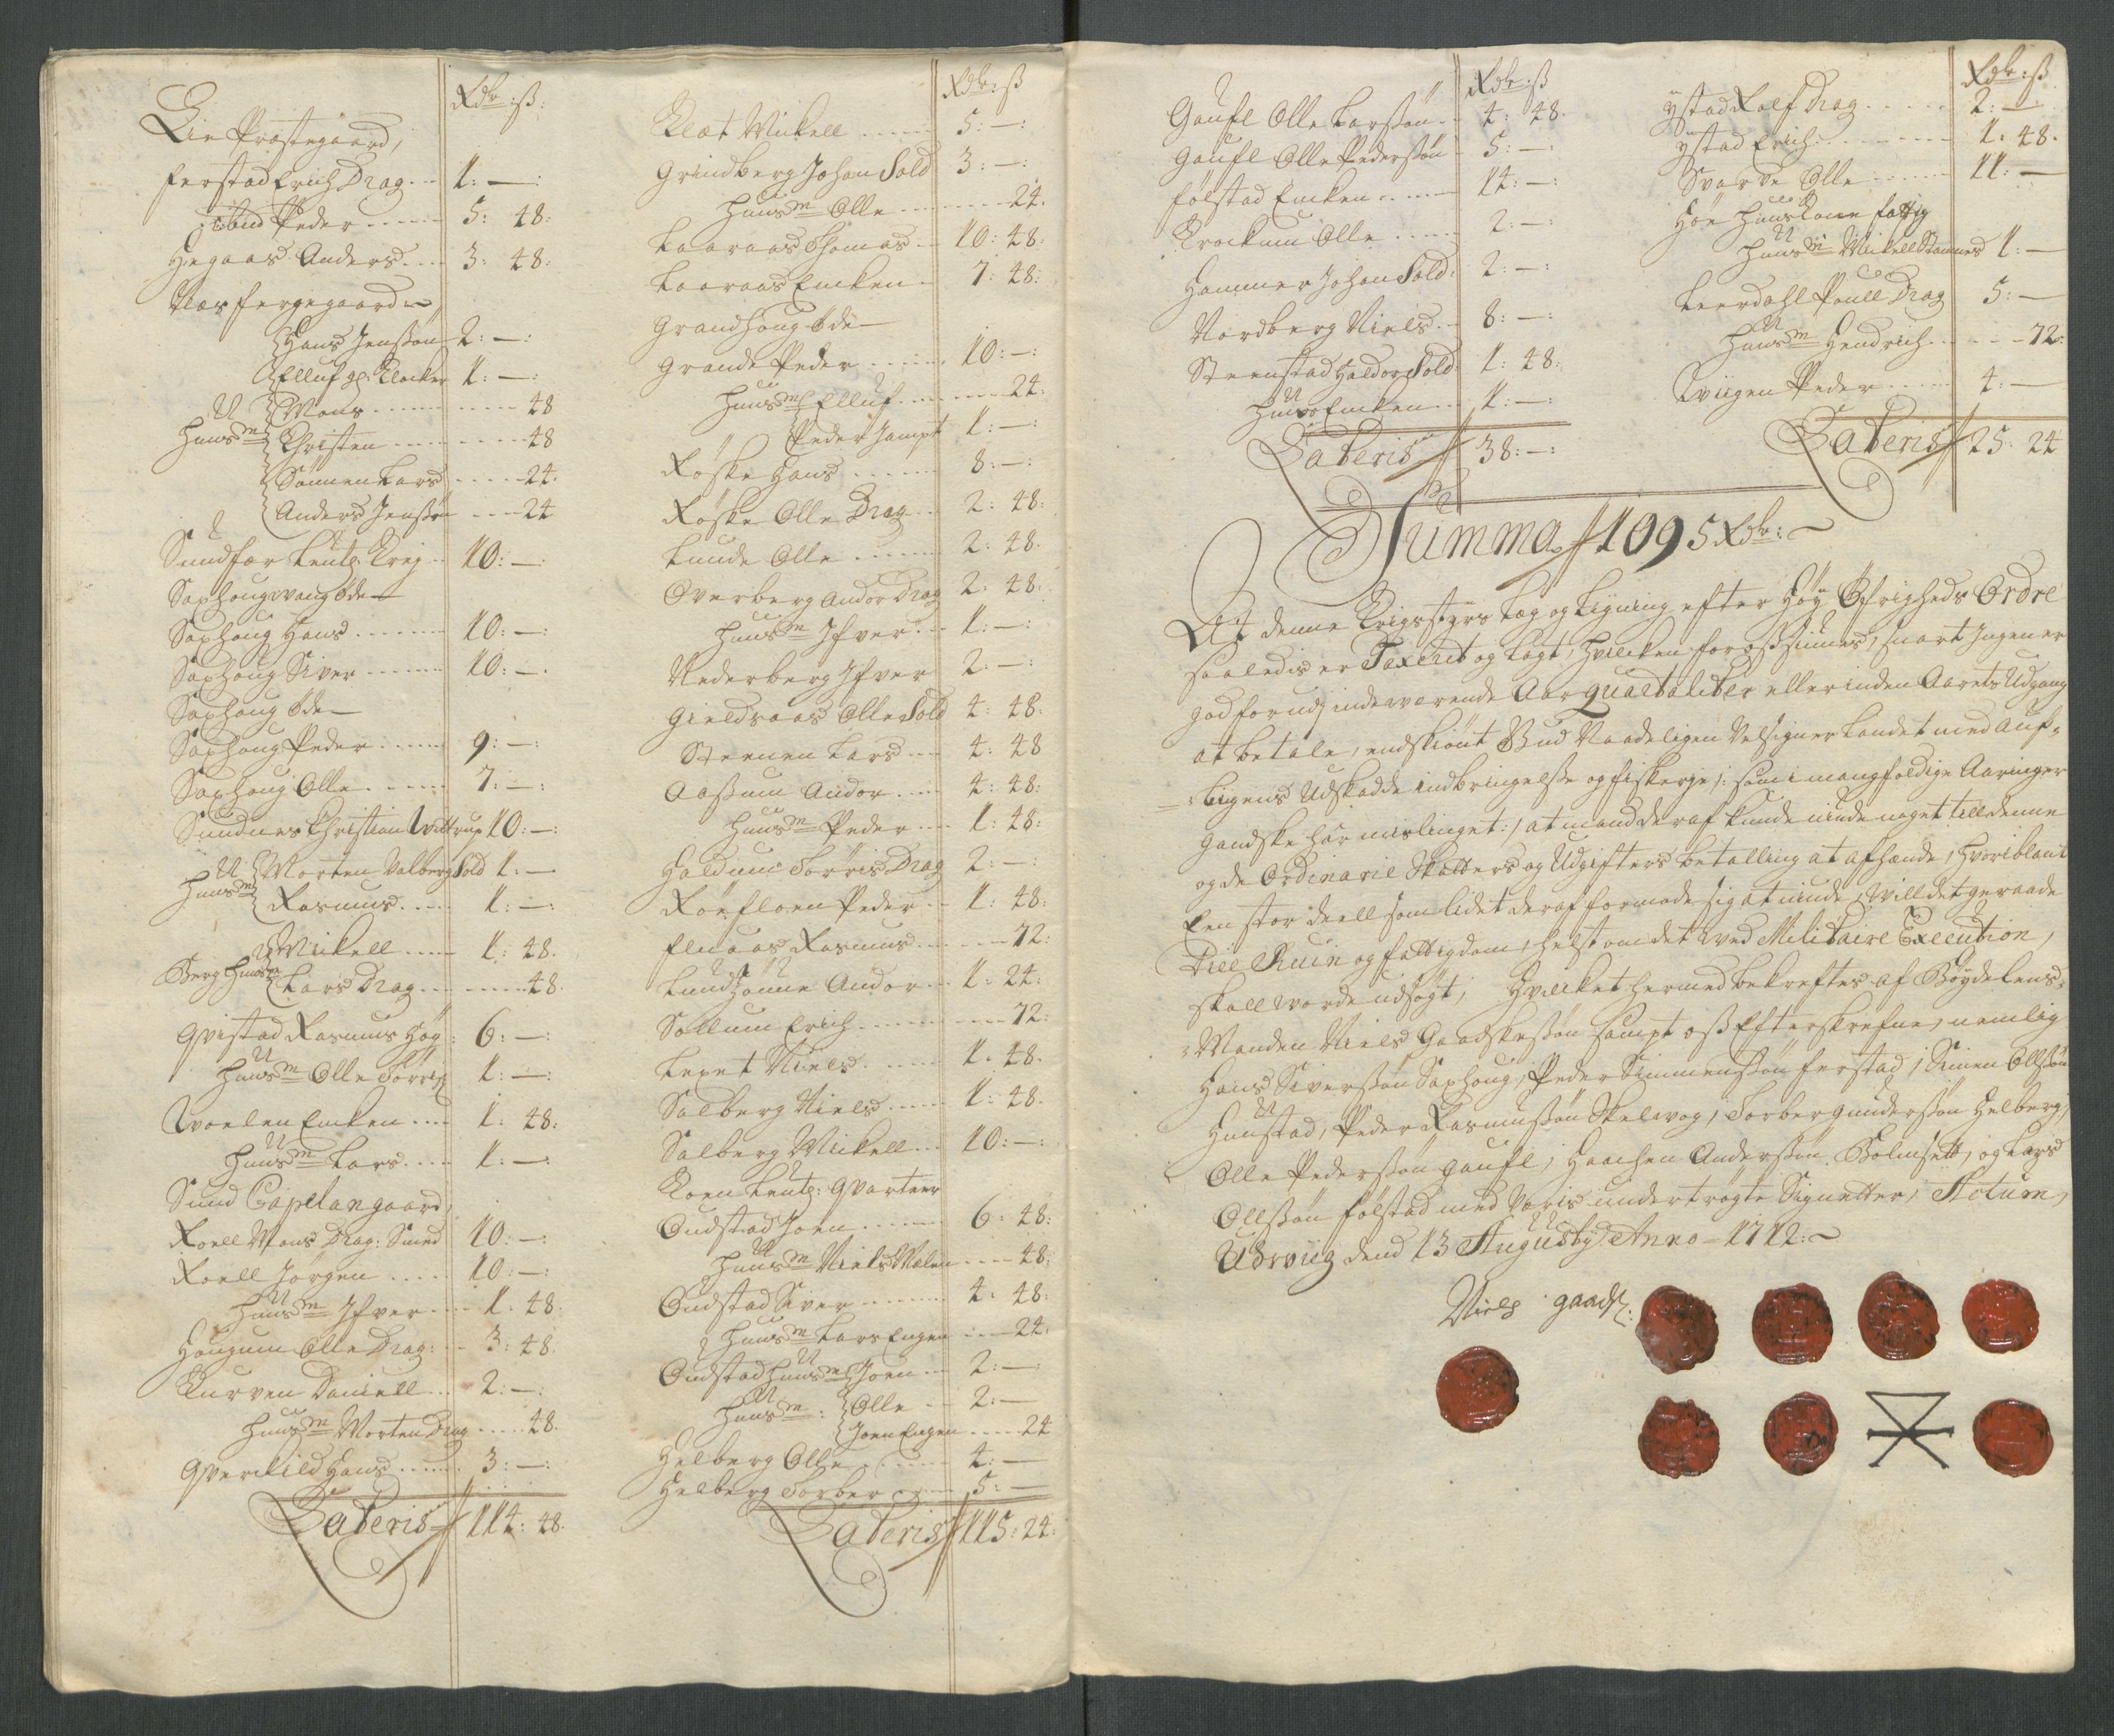 Rdr: ß:
Lie Præstegaard,
ferstad Erich Drag. .. 1: —:
ibid Peder ..... 5: 48:
Hegaas Anders ... 3: 48:
Næs fergegaard —
Hans Jenssøn 2: —:
Elluf gl. Klocker 1: —:
Huusm Mons ...... 48
Christen ...... 48
Sönnen Lars ..... 24.
Anders Jenssøn .... 24
Sundfær Leutg. Krej .. 10: —:
Saxhougvang øde —
Saxhoug Hans ....... 10: —:
Saxhoug Siver ....... 10: —.
Saxhoug øde —
Saxhoug Peder ...... 9: —:
Saxhoug Olle ...... 7: —:
Sundnes Christian Wittrup 10: —:
Huusm Morten Valberg Sold 1: —
Rasmus ..... 1: —:
Mikell ..... 1: 48.
Berg Huusm Lars Drag ....... 48.
Qvistad Rasmus Høg: 6: —:
Huusm Olle Torris 1: —:
Woelen Enken .... 1: 48:
Huusm Lars .... 1: —:
Sund Capelangaard,
Roell Mons Drag: Smed 10: —:
Roell Jørgen ..... 10: —:
Huusm Ifver .... 1: 48.
Hougum Olle Drag: .. 3: 48.
Kurven Daniell .. 2: —:
Huusm Morten Drag ..... 48.
Qverkild Hans ....... 3: —:
Lateris 114: 48.
Rdr: ß
Klæt Mickell ....... 5: —:
Grindberg Johan Sold 3: —:
Huusm Olle ........ 24.
Laaraas Thomas .. 10: 48:
Laaraas Enken .. 7: 48:
Grandhoug øde —
Grande Peder ....... 10: —:
Huusm Elluf ........ 24:
Peder Jampt 1: —:
Røske Hans ....... 8: —:
Røske Olle Drag .. 2: 48:
Lunde Olle ....... 2: 48.
Overberg Andor Drag 2: 48:
Huusm Ifver ... 1: —:
Nederberg Ifver 2: —:
Gieldraas Olle Sold 4: 48.
Steenen Lars .... 4: 48
Aassum Andor .... 4: 48:
Huusm Peder .... 1: 48:
Haldum Torris Drag 2: —:
Røefloen Peder .. 1: 48:
Elnaas Rasmus ..... 72:
Lund Hönne Andor .. 1: 24:
Sollum Erich ........ 72:
Lexet Niels ...... 1: 48.
Salberg Niels ..... 1: 48.
Salberg Mickell ... 10: —:
Koen Leutg: Qvarteer
Oudstad Joen ....... 6: 48:
Huusm Niels Mælen .... 48:
Oudstad Siver ....... 4: 48:
Huusm Lars Engen .... 24:
Oudstad Huusm Joen ... 2: —:
Huusm: Olle .. 2: —
Joen Engen ..... 24
Helberg Olle ....... 4: —
Helberg Torber ..... 5: —
Lateris 115: 24:
Rdr: ß
Gaufl Olle Larssøn .. 4: 48.
Gaufl Olle Pederssøn 5: —:
følstad Enken ...... 14: —:
Krockum Olle ..... 2: —:
Hammer Johan Sold: 2: —:
Nordberg Niels .. 8: —:
Steenstad Haldor Sold: 1: 48:
Huus Enken ... 1: —:
Lateris 38: —:
Rdr: ß
ystad Rolf Drag ..... 2: —:
ystad Erich ........ 1: 48.
Svarve Olle ...... 11: —
Høe Huus Kone fattig
Huusm Mickell Stamnes 1: —
Leerdahl Pouell Drag 5: —
Huusm Hendrich ..... 72.
Tviigen Peder ..... 4: —
Lateris 25: 24
Summa 1095 Rdr: —
At denne Krigsstyrs Læg og Ligning efter Høy Øfrigheds Ordre
saaledis er Taxerit og Lagt, hvilcken for oß siunes, snart Ingen er
god for udj indeværende Aar qvæstaliter eller inden Aarets Udgang
at betale, endskiønt Gud Naadeligen Velsigner Landet med auf-
lingens Udskadde indbringelße og fiskerje /: som i mangfoldige Aaringer
Gandske har mislinget: / at mand deraf kunde niude noget till denne
og de Ordinarie Skatters og Udgifters betalling at afhænde, hvoriblant
Een stor deell som lidet deraf formode sig at niude, Will det geraade
Till Ruin og fattigdom, helst om det wed Militaire Execution,
skall worde udsøgt; Hvilcket hermed bekreftes af Bøyde Lens-
Manden Niels Gaadskessøn sampt oß Efterskrefne, nemlig
Hans Siverssøn Saxhoug, Peder Simmenssøn ferstad, Simen Ollssøn
Hunstad, Peder Rasmussøn Skelvog, Torber gunderssøn Helberg,
Olle Pederssøn gaufl, Haachen Anderssøn Bolmset, og Lars
Ollssøn følstad med Voris undertrøgte Signetter, Actum,
Udrviig dend 13 Augusty Anno 1712: —
Niels gaadsk: